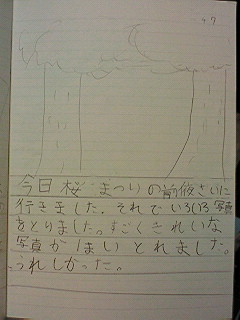 4 7
今日桜まつりの前夜さいに
行きました。それでいろいろ写真
をとりました。すごくきれいな
写真がいっぱいとれました。
うれしかった。